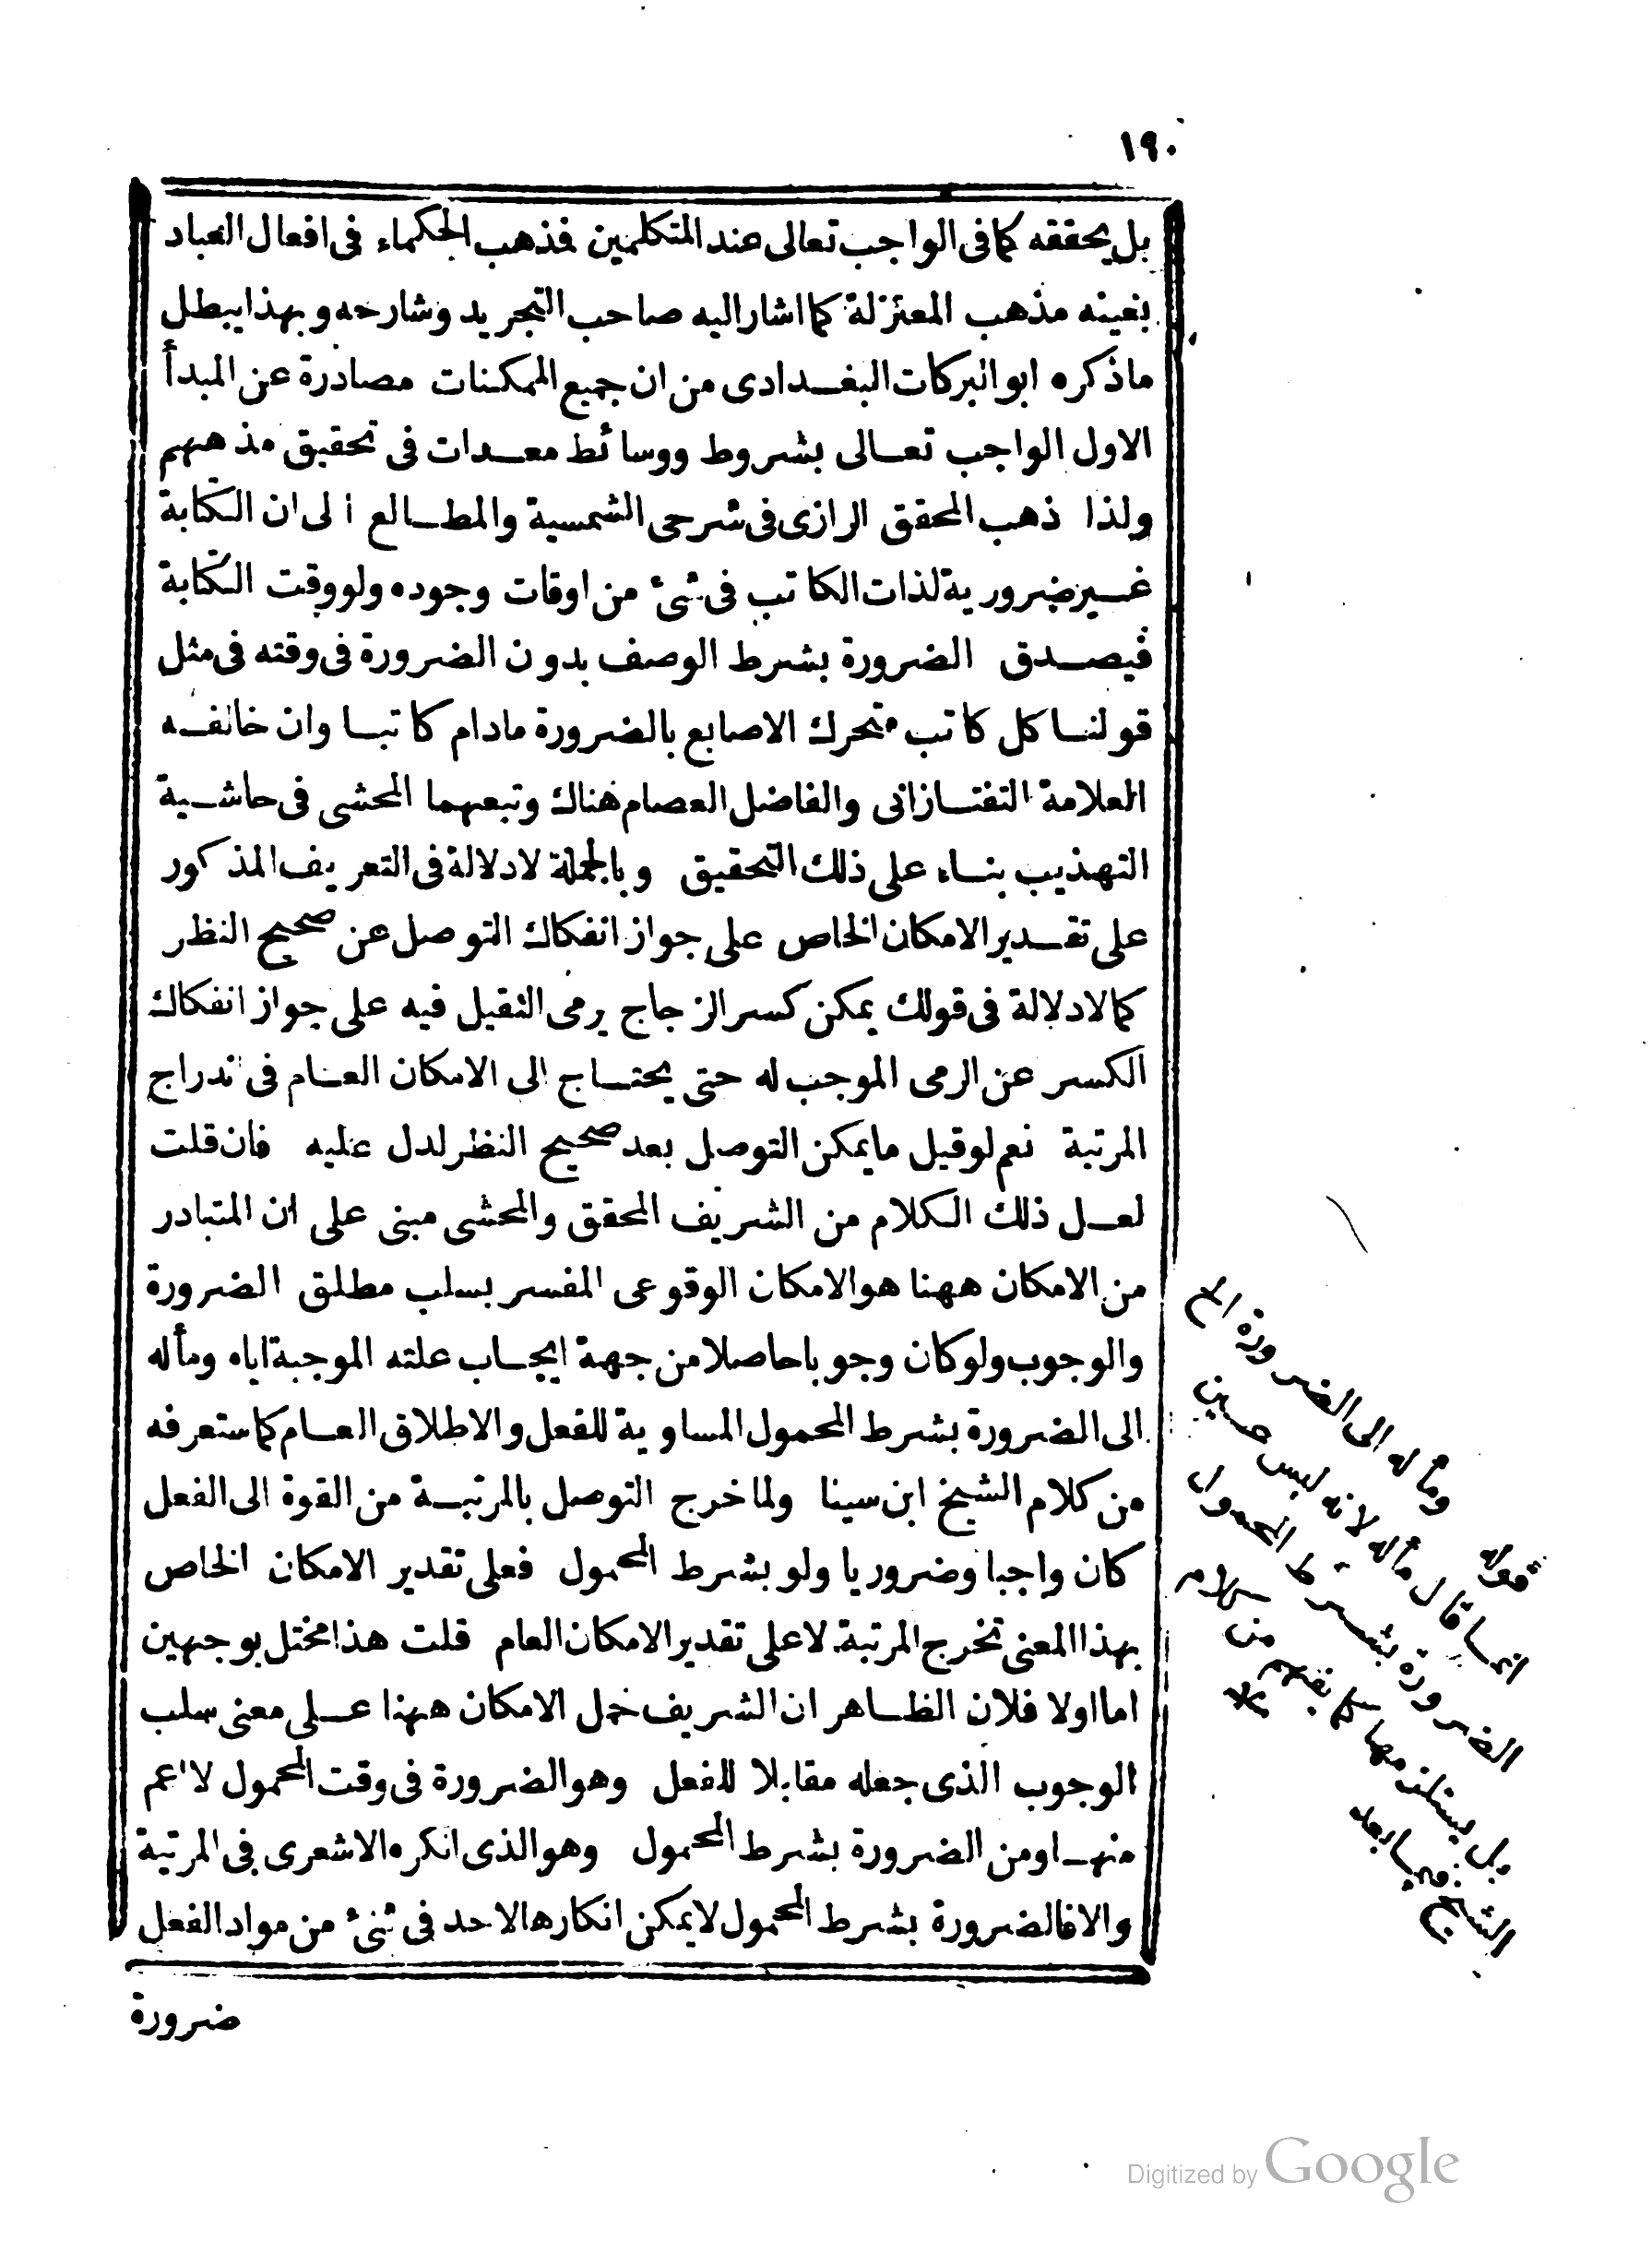 ١٩٠
بل يحققه كما فى الواجب تعالى عند المتكلمين فمذهب الحكماء فى افعال العباد
بعينه مذهب المعتزلة كما اشار اليه صاحب التجريد وشارحه وبهذا يبطل
ماذكره ابو البركات البغدادى من ان جميع الممكنات مصادرة عن المبدأ
الاول الواجب تعالى بشروط ووسائط معدات فى تحقيق مذهبهم
ولذا ذهب المحقق الرازى فى شرحى الشمسية والمطالع الى ان الكتابة
غير ضرورية لذات الكاتب فى شئ من اوقات وجوده ولو وقت الكتابة
فيصدق الضرورة بشرط الوصف بدون الضرورة فى وقته فى مثل
قولنا كل كاتب متحرك الاصابع بالضرورة مادام كاتبا وان خالفه
العلامة التفتازانى والفاضل العصام هناك وتبعهما المحشى فى حاشية
التهذيب بناء على ذلك التحقيق وبالجملة لادلالة فى التعريف المذكور
على تقدير الامكان الخاص على جواز انفكاك التوصل عن صحيح النظر
كما لادلالة فى قولك يمكن كسر الزجاج يرمى الثقيل فيه على جواز انفكاك
الكسر عن الرمى الموجب له حتى يحتاج الى الامكان العام فى اندراج
المرتبة نعم لو قيل مايمكن التوصل بعد صحيح النظر لدل عليه فان قلت
لعل ذلك الكلام من الشريف المحقق والمحشى مبنى على ان المتبادر
من الامكان ههنا هو الامكان الوقوعى المفسر بسلب مطلق الضرورة
والوجوب ولو كان وجوبا حاصلا من جهة ايجاب علته الموجبة اياه ومأله
الى الضرورة بشرط المحمول المساوية للفعل والاطلاق العام كما ستعرفه
من كلام الشيخ ابن سينا ولما خرج التوصل بالمرتبة من القوة الى الفعل
كان واجبا وضروريا ولو بشرط المحمول فعلى تقدير الامكان الخاص
بهذا المعنى تخرج المرتبة لا على تقدير الامكان العام قلت هذا مختل بوجهين
اما اولا فلان الظاهر ان الشريف حمل الامكان ههنا على معنى سلب
الوجوب الذى جعله مقابلا للفعل وهو الضرورة فى وقت المحمول لا اعم
منها ومن الضرورة بشرط المحمول وهو الذى انكره الاشعرى فى المرتبة
والا فالضرورة بشرط المحمول لا يمكن انكارها لاحد فى شئ من مواد الفعل
ضرورة
قوله ومأله الى الضرورة الخ
انما قال مأله لانه ليس عين
الضرورة بشرط المحمول
بل يستلزمها كما يفهم من كلام
الشيخ فيما بعد
Digitized by Google